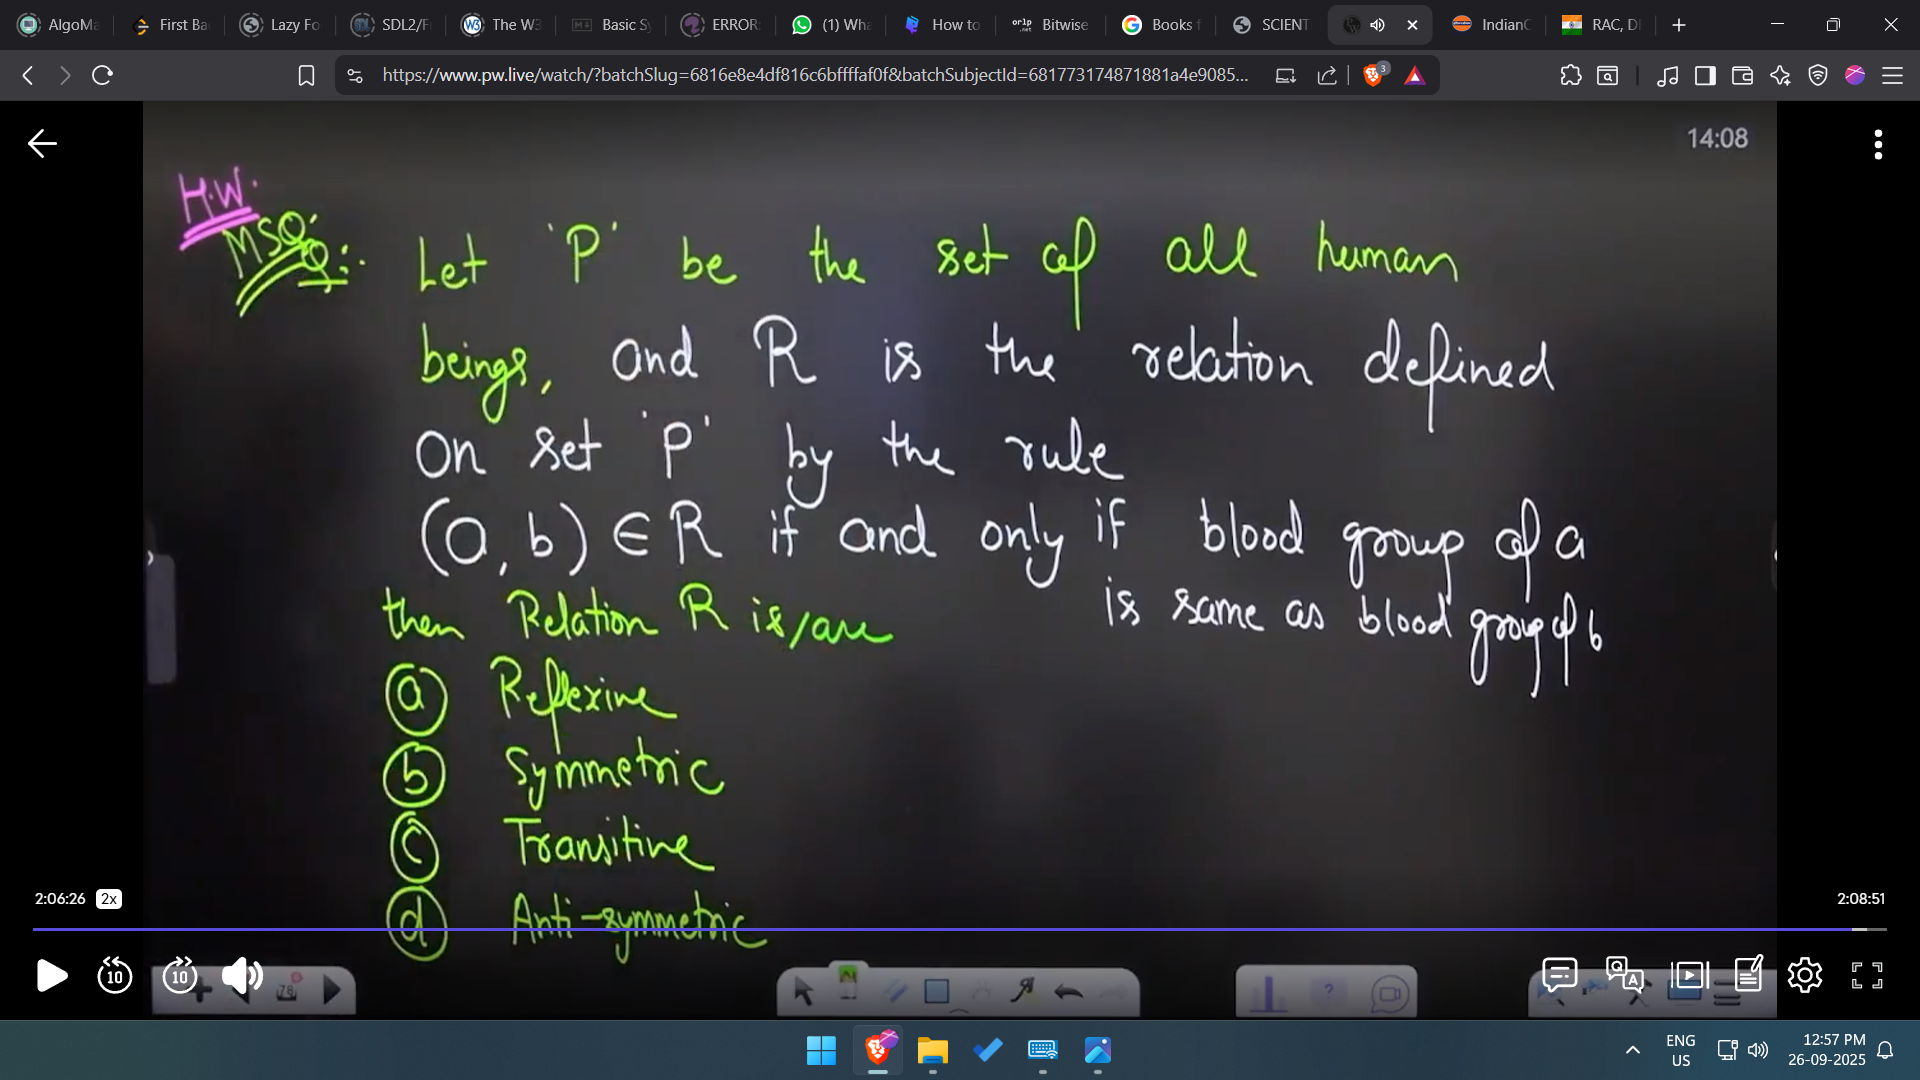 AlgoMa
First Ba
Lazy Fo
SDL2/Fi
The W3
Basic Sy
ERROR:
(1) Wha
How to
Bitwise
Books f
SCIENT
IndianC
RAC, DI
https://www.pw.live/watch/?batchSlug=6816e8e4df816c6bffffaf0f&batchSubjectId=681773174871881a4e9085...
3
14:08
H.W.
MSQ
Q:-
Let 'P' be the set of all human
beings, and R is the relation defined
on set 'P' by the rule
(a, b) ∈ R if and only if blood group of a
is same as blood group of b
then Relation R is/are
a Reflexive
b Symmetric
c Transitive
d Anti-symmetric
2:06:26 2x
2:08:51
10
10
78
ENG
US
12:57 PM
26-09-2025